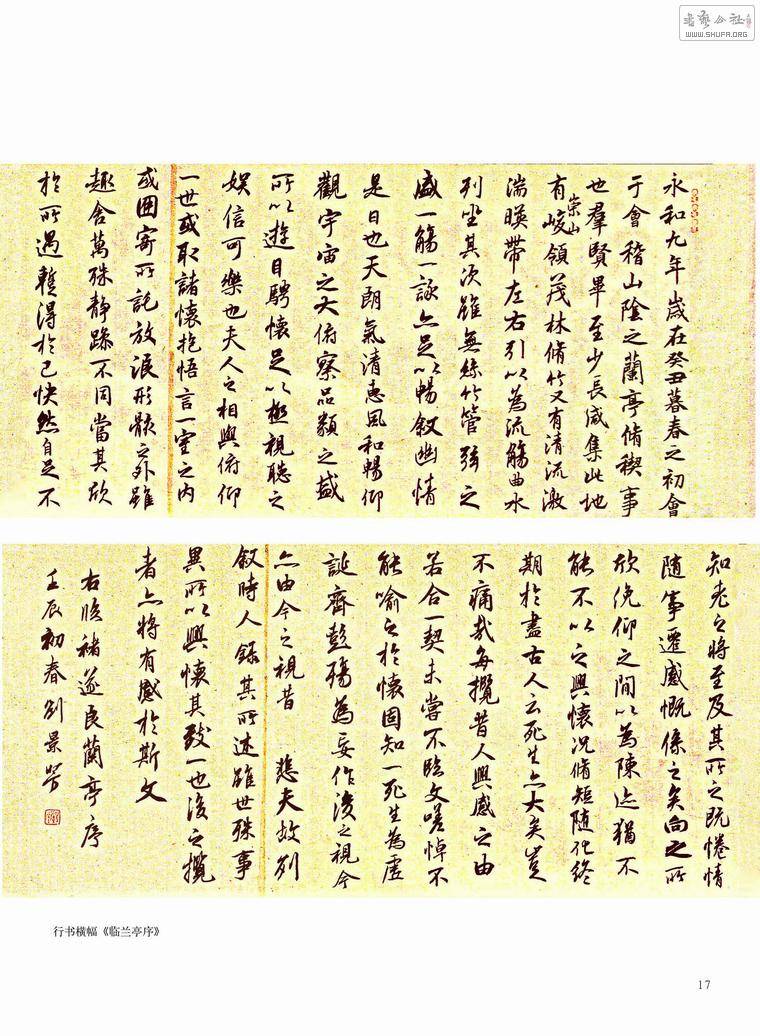 書藝公社
WWW.SHUFA.ORG
永和九年歲在癸丑暮春之初會
于會稽山陰之蘭亭脩稧事
也羣賢畢至少長咸集此地
有崇山峻領茂林脩竹又有清流激
湍暎帶左右引以為流觴曲水
列坐其次雖無絲竹管弦之
盛一觴一詠亦足以暢叙幽情
是日也天朗氣清惠風和暢仰
觀宇宙之大俯察品類之盛
所以遊目騁懷足以極視聽之
娛信可樂也夫人之相與俯仰
一世或取諸懷抱悟言一室之內
或因寄所託放浪形骸之外雖
趣舍萬殊静躁不同當其欣
於所遇暫得於己怏然自足不
知老之將至及其所之既惓情
隨事遷感慨係之矣向之所
欣俛仰之間以為陳迹猶不
能不以之興懷況脩短隨化終
期於盡古人云死生亦大矣豈
不痛哉每攬昔人興感之由
若合一契未嘗不臨文嗟悼不
能喻之於懷固知一死生為虛
誕齊彭殤為妄作後之視今
亦由今之視昔 悲夫故列
叙時人錄其所述雖世殊事
異所以興懷其致一也後之攬
者亦將有感於斯文
右臨褚遂良蘭亭序
壬辰初春劉景芳
行书横幅《临兰亭序》
17